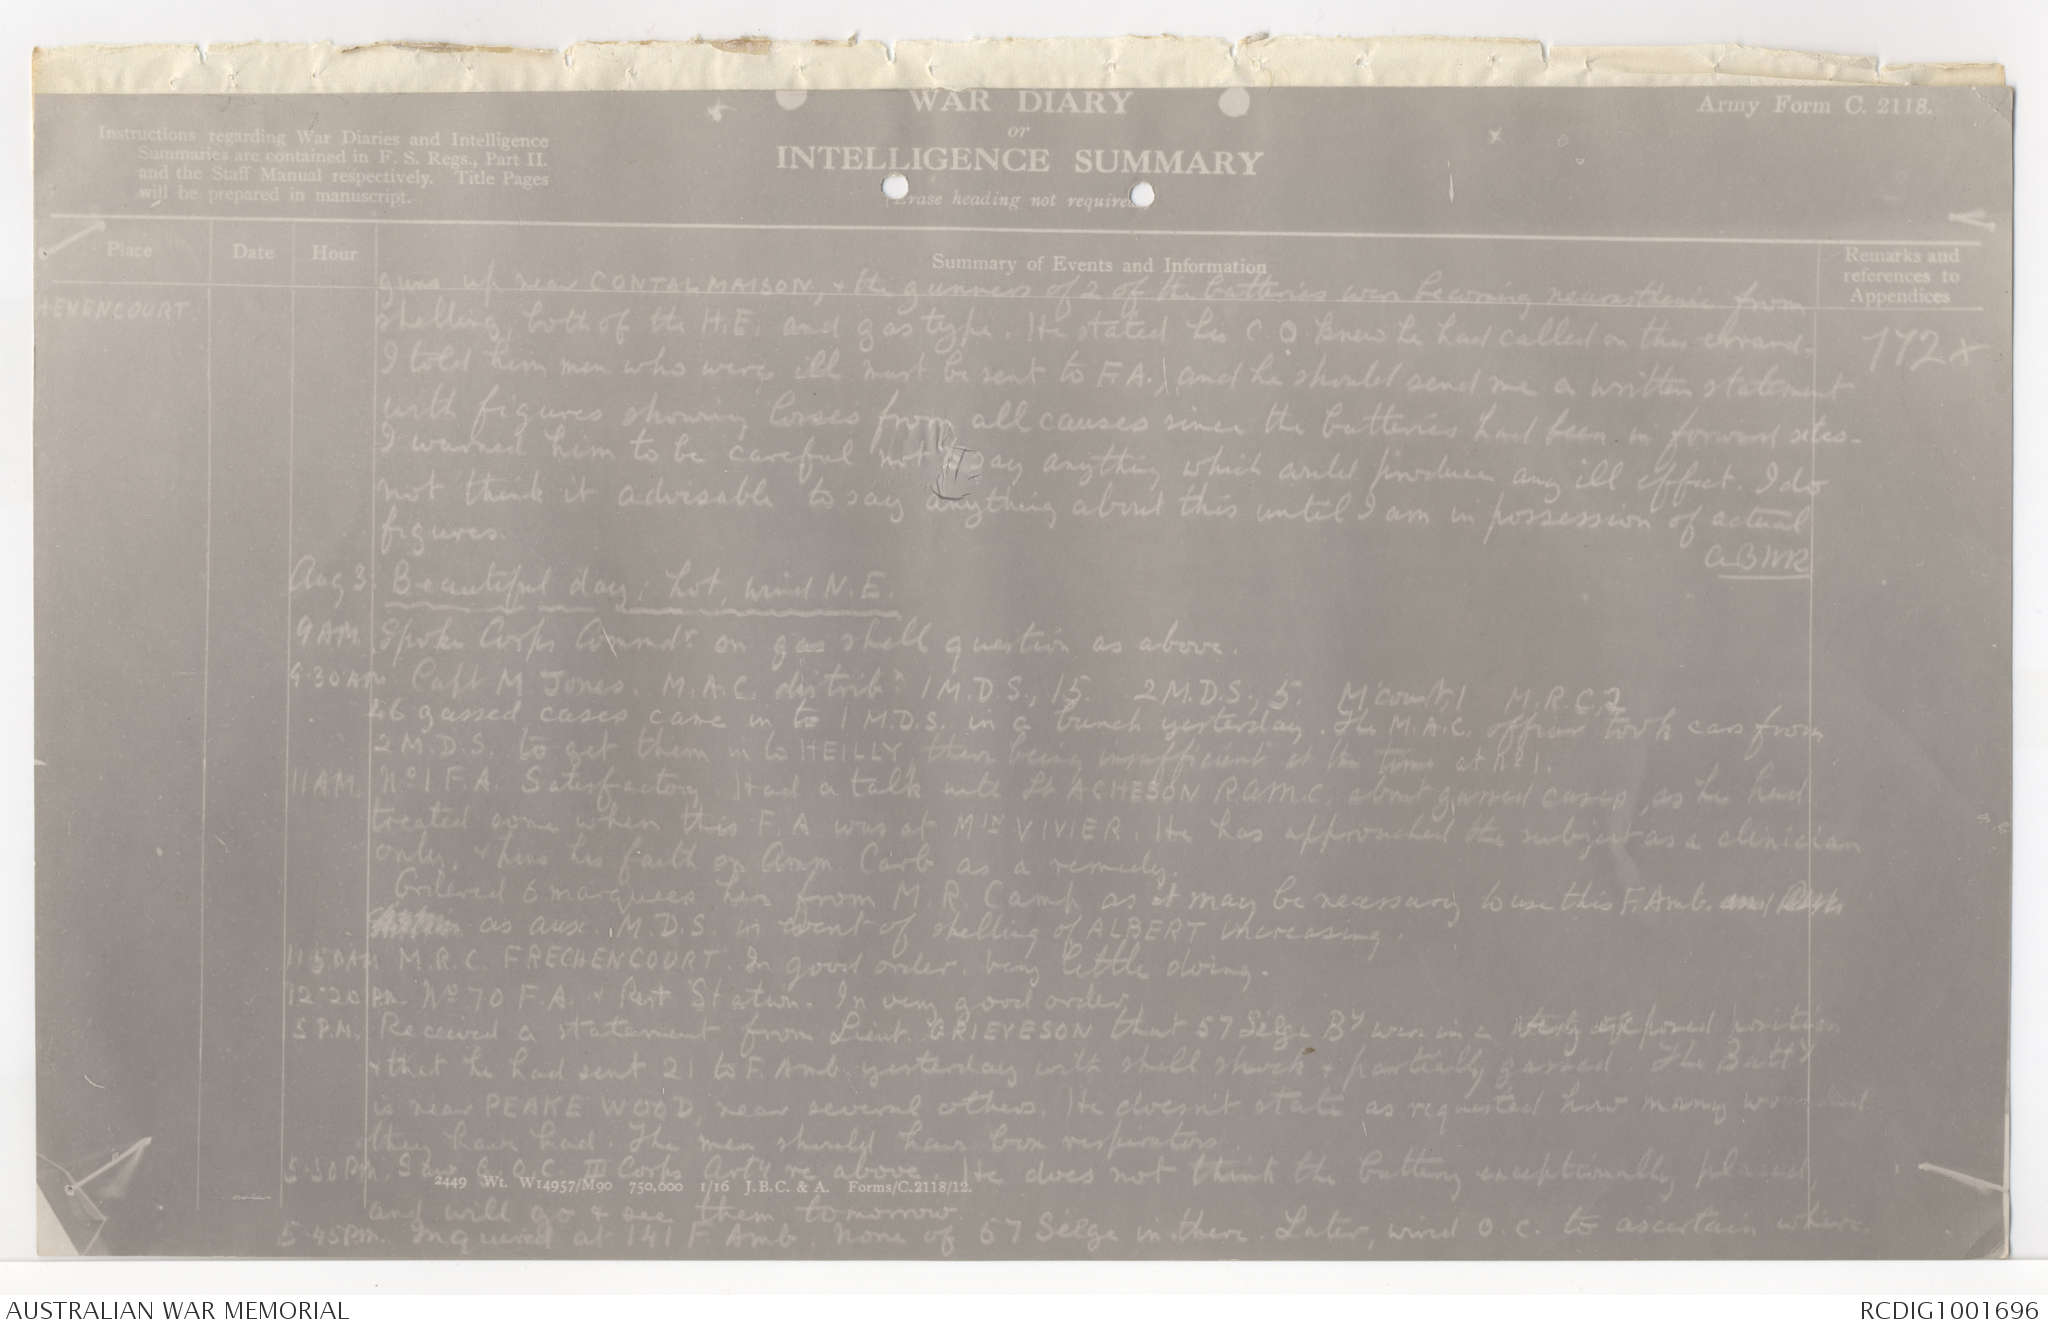 WAR DIARY
or
INTELLIGENCE SUMMARY
(Erase heading not required.)
Army Form C. 2118.
Instructions regarding War Diaries and Intelligence
Summaries are contained in F. S. Regs., Part II.
and the Staff Manual respectively. Title Pages
will be prepared in manuscript.
Place Date Hour Summary of Events and Information Remarks and
references to
Appendices
HENENCOURT 172
guns up near CONTALMAISON, & the gunners of 2 of the batteries were becoming neurasthenic from
shelling, both of the H.E. and gas type. He stated his C.O knew he had called on this errand.
I told him men who were ill must be sent to F.A., and he should send me a written statement
with figures showing losses from all causes since the batteries had been in forward sites.
I warned him to be careful not to say anything which could produce any ill effect. I do
not think it advisable to say anything about this until I am in possession of actual
figures.
Aug 3. Beautiful day; hot, wind N.E.
9 AM. Spoke Corps Commdr on gas shell question as above.
9.30 AM Capt M Jones. M.A.C. distribn 1 M.D.S., 15. 2 M.D.S., 5. M'court, 1 M.R.C, 2
46 gassed cases came in to 1 M.D.S. in a bunch yesterday. The M.A.C. officer took cars from
2 M.D.S. to get them in to HEILLY, there being insufficient at the time at No 1.
11 AM. No 1 F.A. Satisfactory. Had a talk with Lt ACHESON RAMC. about gassed cases, as he had
treated some when this F.A was at Min VIVIER. He has approached the subject as a clinician
only, & pins his faith on Amm. Carb as a remedy.
Ordered 6 marquees here from M.R. Camp as it may be necessary to use this F. Amb.
as aux. M.D.S. in event of shelling of ALBERT increasing.
11.50 AM M.R.C. FRECHENCOURT. In good order. Very little doing.
12.20 PM. No 70 F.A. & Rest Station. In very good order.
5 P.M. Received a statement from Lieut. GRIEVESON that 57 Seige By was in a very exposed position
& that he had sent 21 to F. Amb. yesterday with shell shock & partially gassed. The Batty
is near PEAKE WOOD, near several others. He doesn't state as requested how many wounded
they have had. The men should have box respirators.
5.30 PM. Saw G.O.C. III Corps Arty re above. He does not think the battery exceptionally placed,
and will go & see them tomorrow.
5.45 PM. Inquired at 141 F. Amb. None of 57 Seige in there. Later, wired O.C. to ascertain where
2449 Wt. W14957/M90 750,000 1/16 J.B.C. & A. Forms/C.2118/12.
AUSTRALIAN WAR MEMORIAL RCDIG1001696